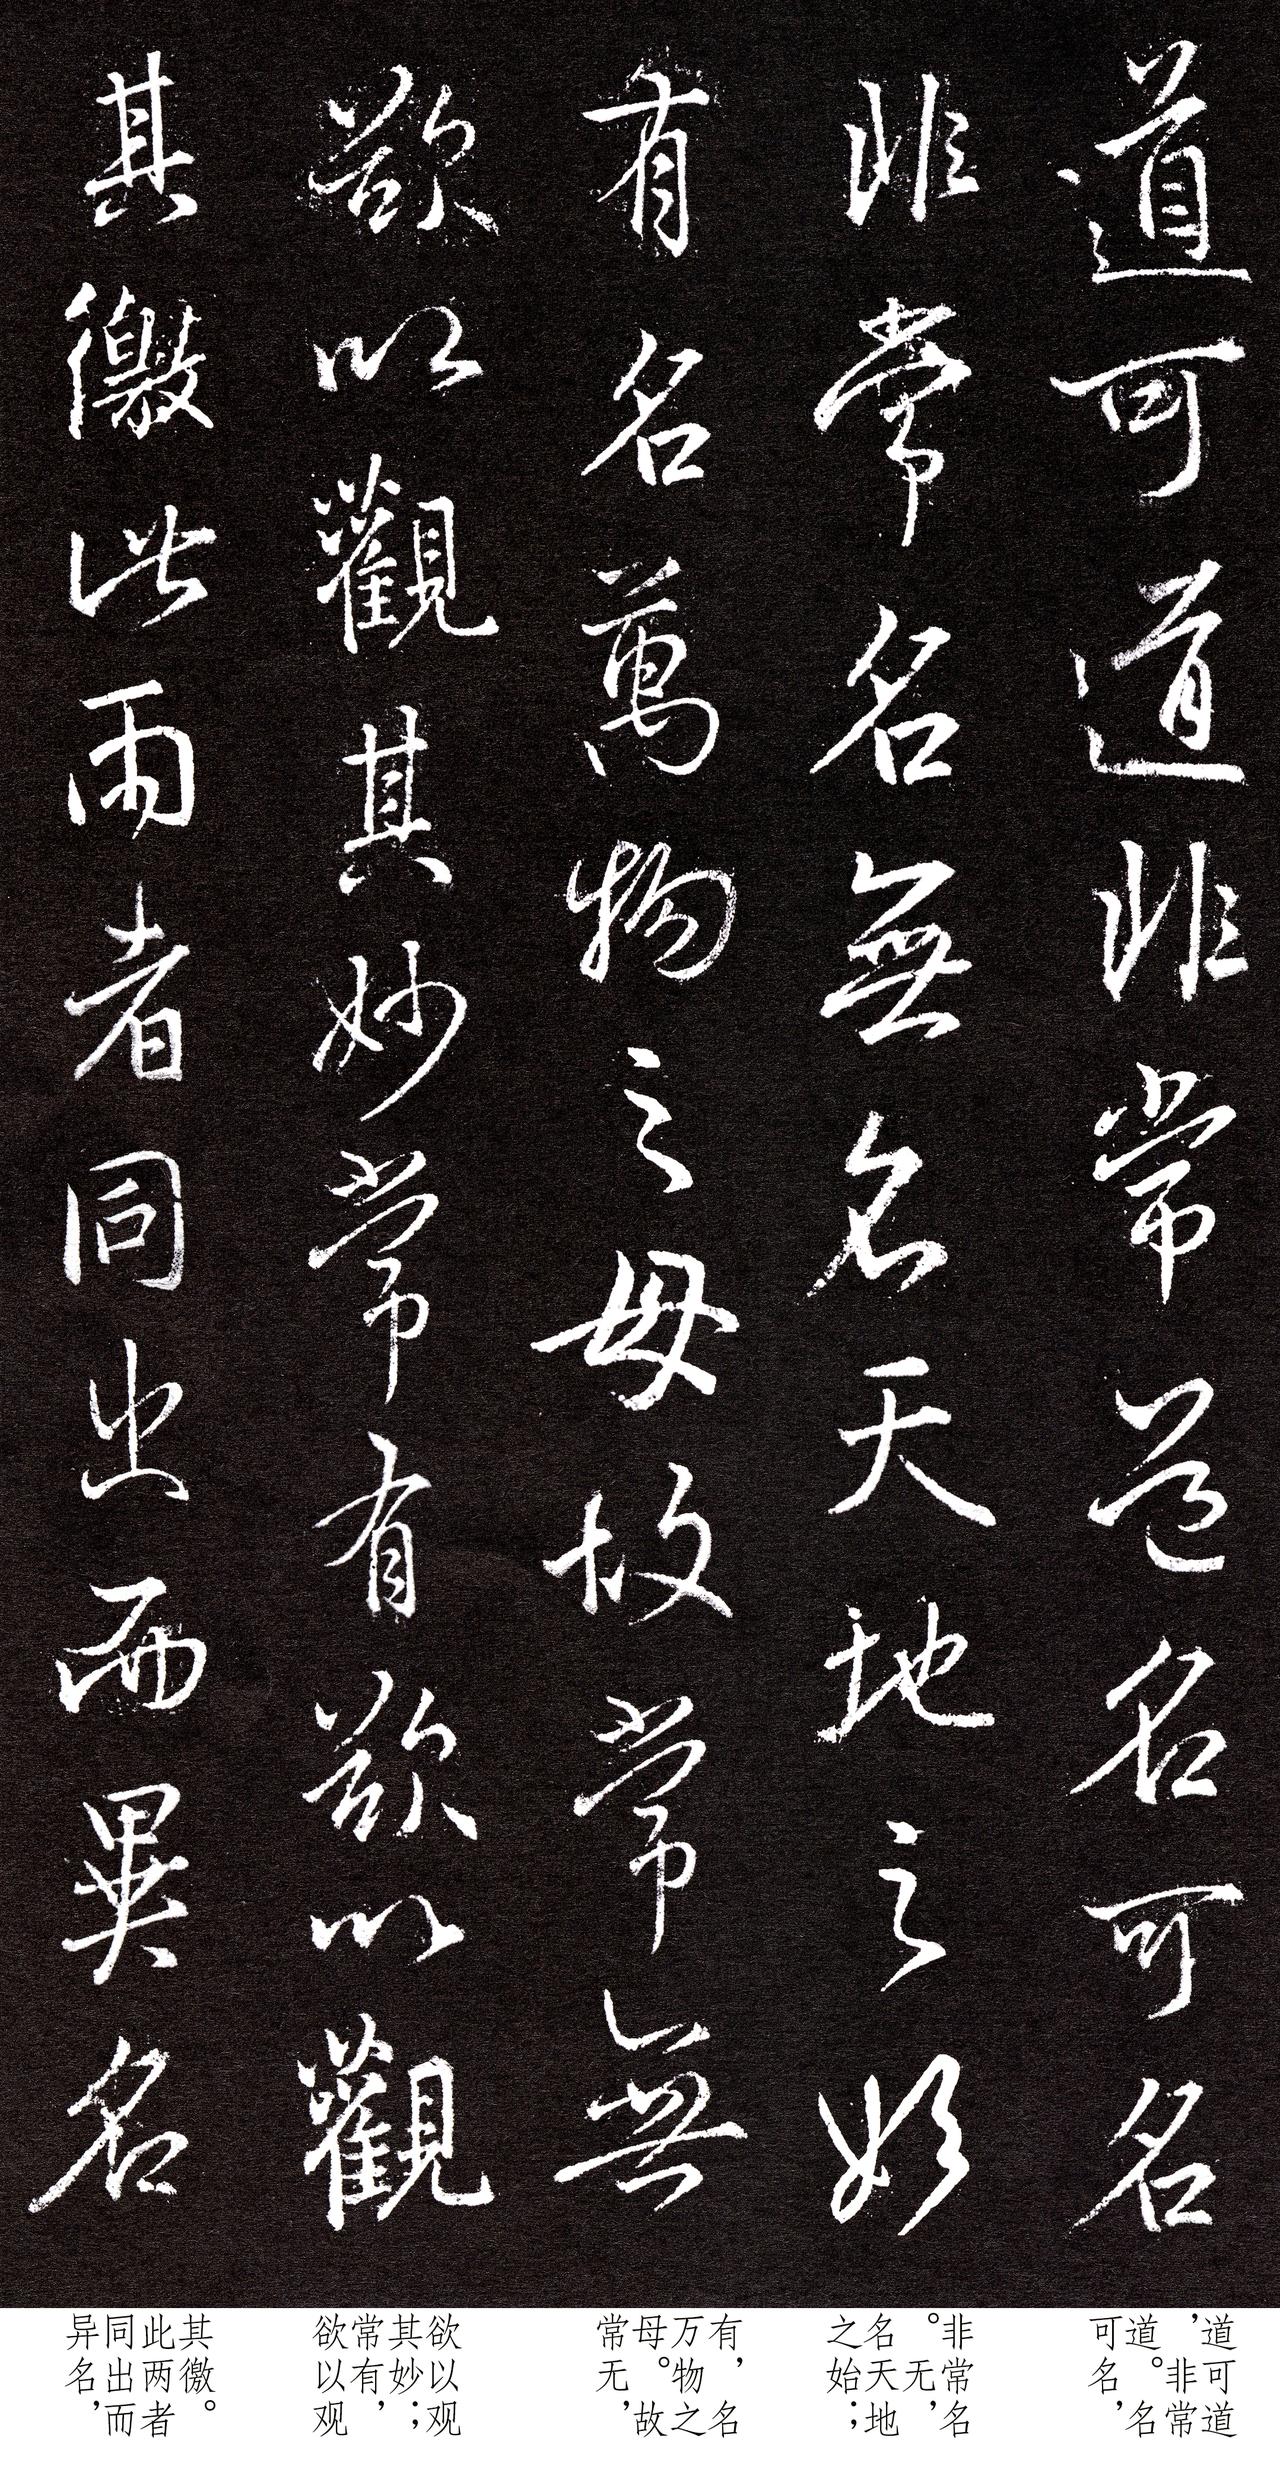 道可道非常道名可名
非常名無名天地之始
有名萬物之母故常無
欲以觀其妙常有欲以觀
其徼此兩者同出而異名
道可道
，非常
道。名
可名，
非常名
。无，
名天地
之始；
有，名
万物之
母。故
常无，
欲以观
其妙；
常有，
欲以观
其徼。
此两者
同出而
异名，